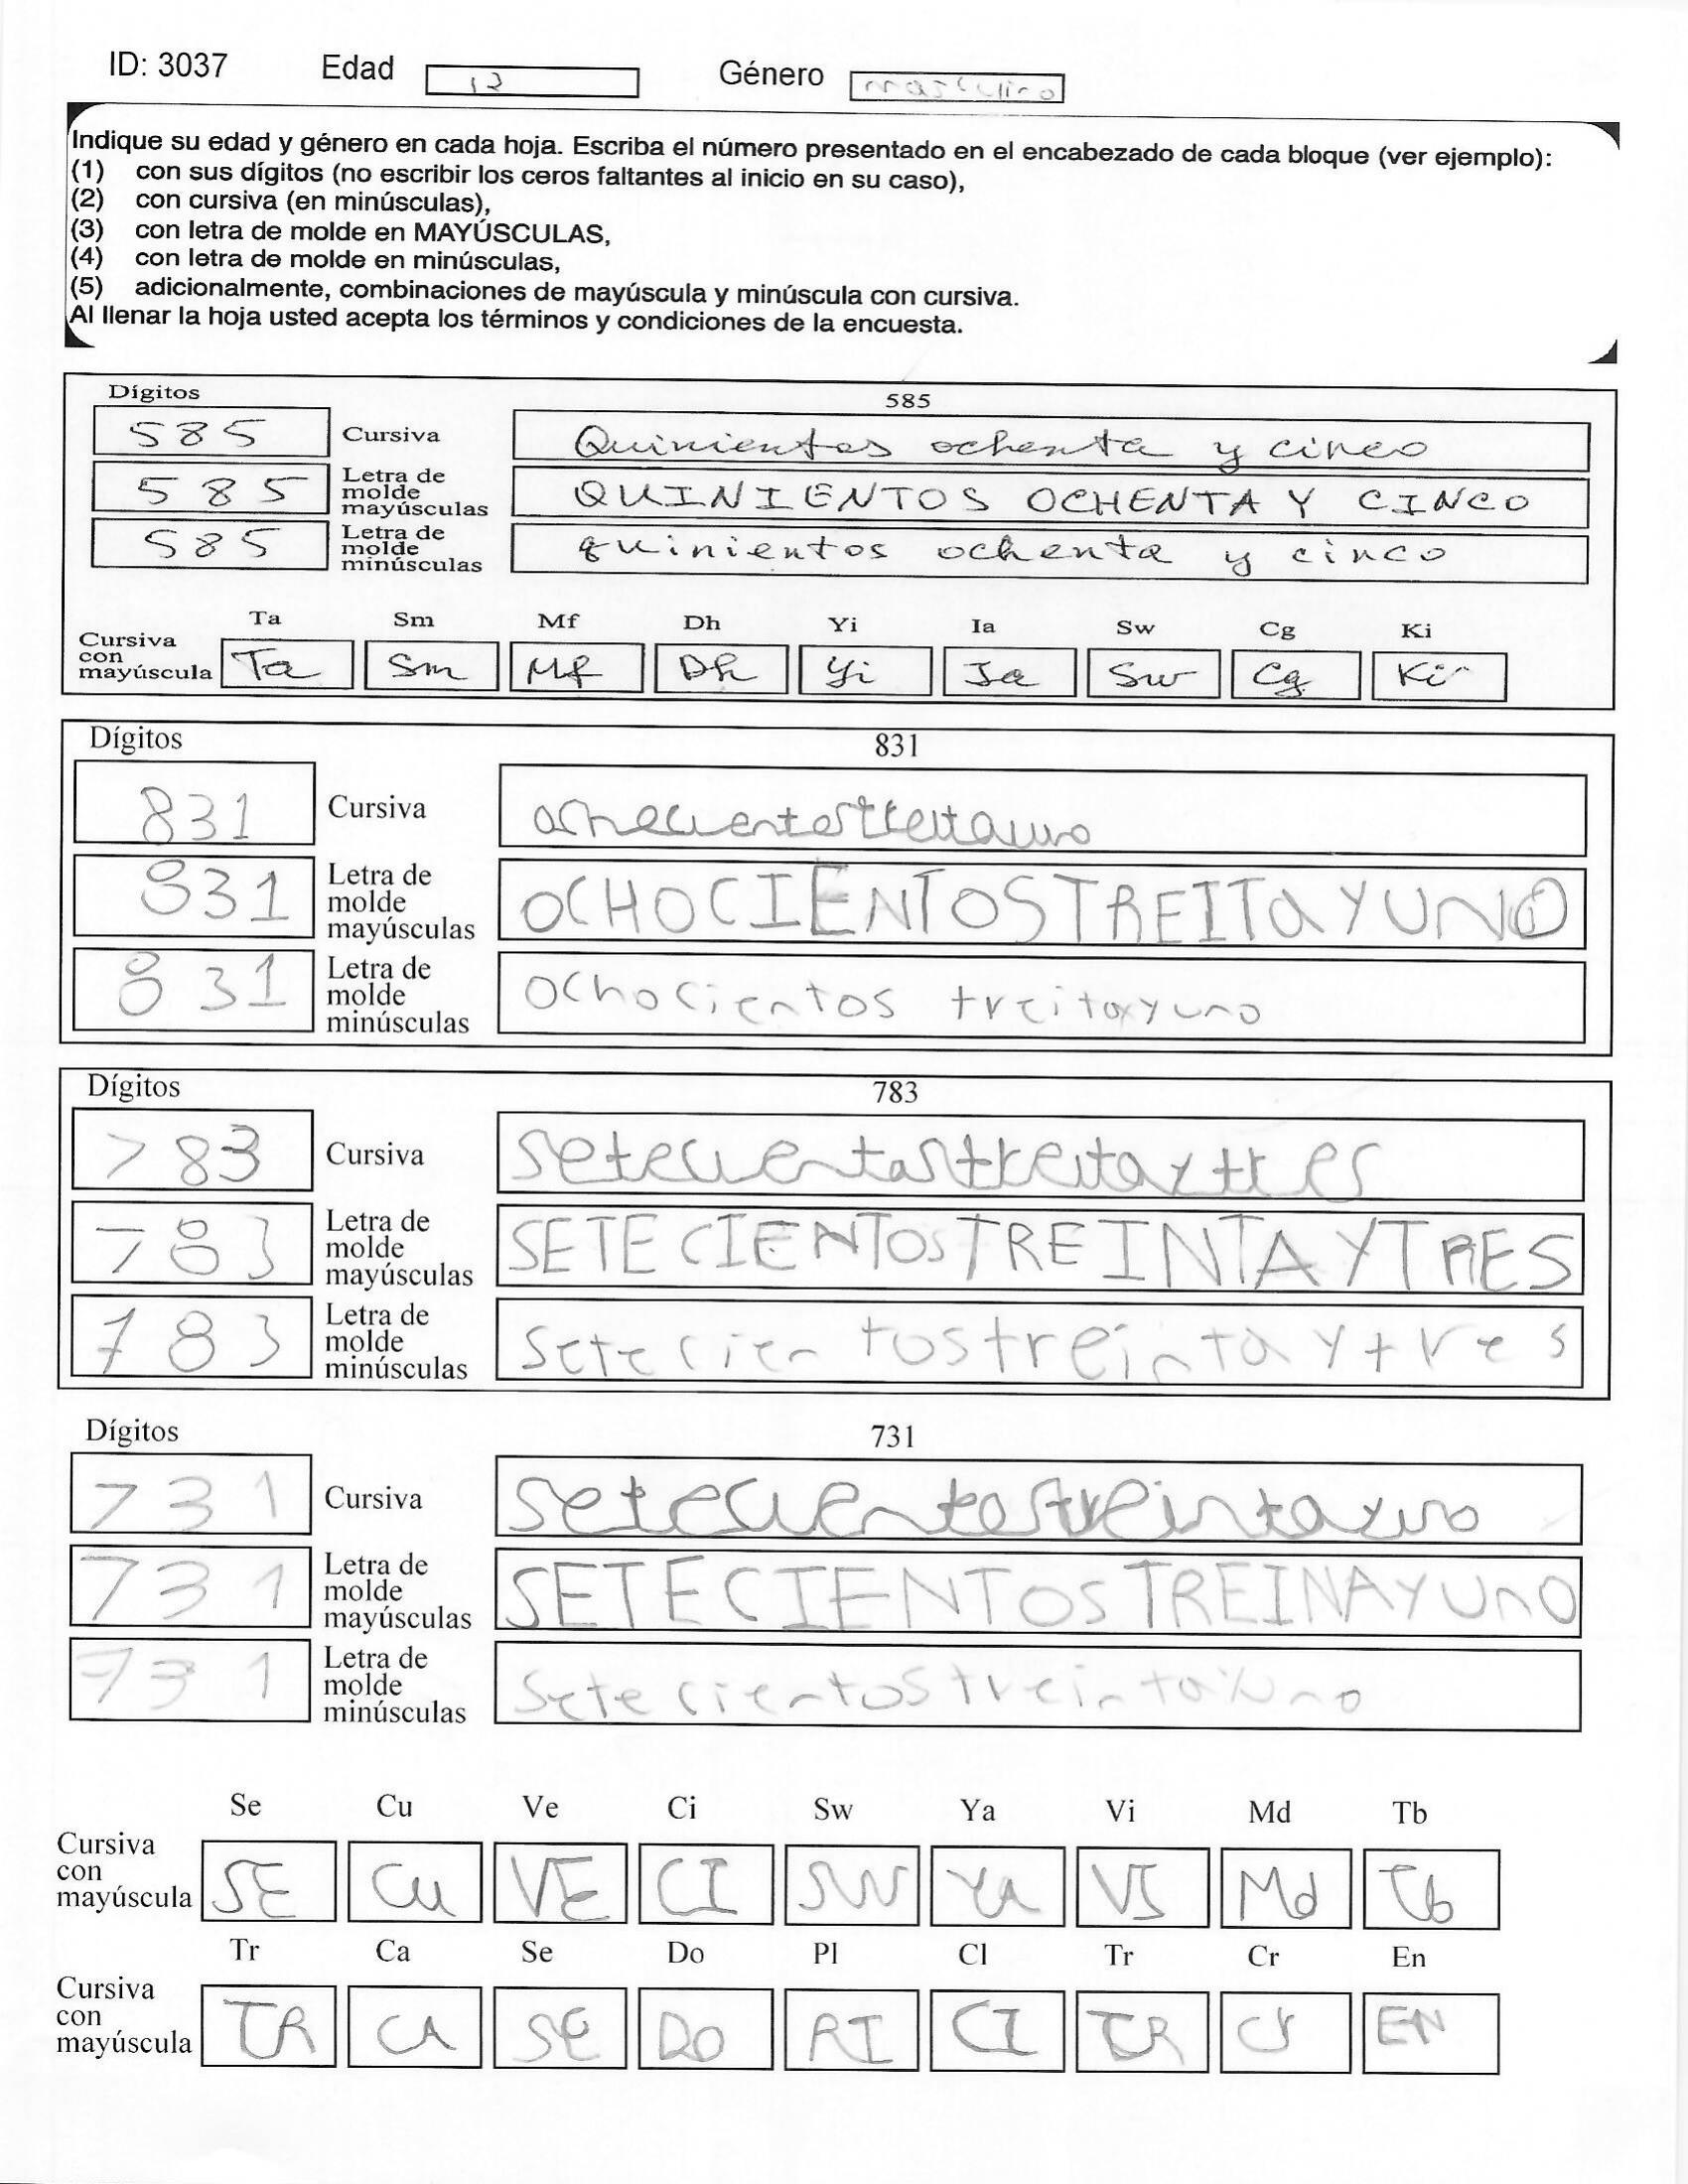 ID: 3037 Edad 12 Género masculino
Indique su edad y género en cada hoja. Escriba el número presentado en el encabezado de cada bloque (ver ejemplo):
(1) con sus dígitos (no escribir los ceros faltantes al inicio en su caso),
(2) con cursiva (en minúsculas),
(3) con letra de molde en MAYÚSCULAS,
(4) con letra de molde en minúsculas,
(5) adicionalmente, combinaciones de mayúscula y minúscula con cursiva.
Al llenar la hoja usted acepta los términos y condiciones de la encuesta.
Dígitos 585
585 Cursiva Quinientos ochenta y cinco
585 Letra de molde mayúsculas QUINIENTOS OCHENTA Y CINCO
585 Letra de molde minúsculas quinientos ochenta y cinco
Ta Sm Mf Dh Yi Ia Sw Cg Ki
Cursiva con mayúscula Ta Sm Mf Dh Yi Ia Sw Cg Ki
Dígitos 831
831 Cursiva
831 Letra de molde mayúsculas OCHOCIENTOS TREITa YUNO
831 Letra de molde minúsculas ochocientos treitayuno
Dígitos 783
783 Cursiva
783 Letra de molde mayúsculas SETECIENTOS TREINTA YTRES
783 Letra de molde minúsculas setecientostreinta y tres
Dígitos 731
731 Cursiva
731 Letra de molde mayúsculas SETECIENTOS TREINAYUnO
731 Letra de molde minúsculas setecientos treintayuno
Se Cu Ve Ci Sw Ya Vi Md Tb
Cursiva con mayúscula SE Cu VE CI SW Ya VI Md Tb
Tr Ca Se Do Pl Cl Tr Cr En
Cursiva con mayúscula TR CA SE DO PI CI TR Cr EN